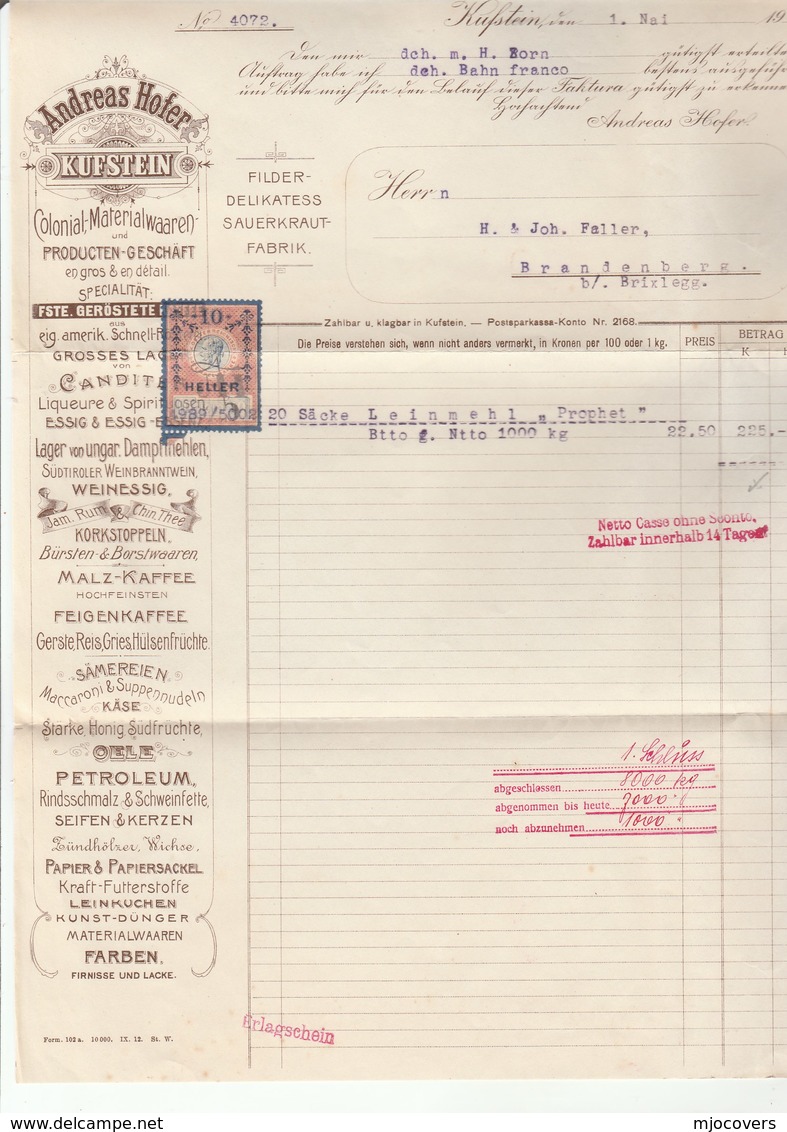 No 4072.
Kufstein, den 1. Mai 19
Den mir dch. m. H. Zorn gütigst erteilte
Auftrag habe ich dch. Bahn franco bestens ausgeführ
und bitte mich für den Belauf dieser Faktura gütigst zu erkenne
Hochachtend
Andreas Hofer.
Andreas Hofer
KUFSTEIN
Colonial-, Materialwaaren-
und
PRODUCTEN-GESCHÄFT
en gros & en détail.
SPECIALITÄT:
FSTE. GERÖSTETE
aus
eig. amerik. Schnell-R
GROSSES LAG
von
CANDITE
Liqueure & Spirit osen
ESSIG & ESSIG-
Lager von ungar. Dampfmehlen,
SÜDTIROLER WEINBRANNTWEIN,
WEINESSIG,
Jam. Rum & Chin. Thee
KORKSTOPPELN,
Bürsten- & Borstwaaren,
MALZ-KAFFEE
HOCHFEINSTEN
FEIGENKAFFEE
Gerste, Reis, Gries, Hülsenfrüchte.
SÄMEREIEN,
Maccaroni & Suppennudeln
KÄSE
Stärke, Honig Südfrüchte,
OELE
PETROLEUM,
Rindsschmalz & Schweinfette,
SEIFEN & KERZEN
Zündhölzer, Wichse,
PAPIER & PAPIERSÄCKEL
Kraft-Futterstoffe
LEINKUCHEN
KUNST-DÜNGER
MATERIALWAAREN
FARBEN,
FIRNISSE UND LACKE.
FILDER-
DELIKATESS
SAUERKRAUT-
FABRIK.
Herrn
H. & Joh. Faller,
Brandenberg.
b/. Brixlegg.
Zahlbar u. klagbar in Kufstein. — Postsparkassa-Konto Nr. 2168.
Die Preise verstehen sich, wenn nicht anders vermerkt, in Kronen per 100 oder 1 kg.
PREIS
BETRAG
K H
10
HELLER
20 Säcke Leinmehl „Prophet"
Btto f. Ntto 1000 kg 22.50 225.-
Netto Cassa ohne Sconto.
Zahlbar innerhalb 14 Tagen
1. Schluss
abgeschlossen 8000 kg
abgenommen bis heute 7000 "
noch abzunehmen 1000 "
Erlagschein
Form. 102 a. 10000. IX. 12. St. W.
www.delcampe.net
mjocovers